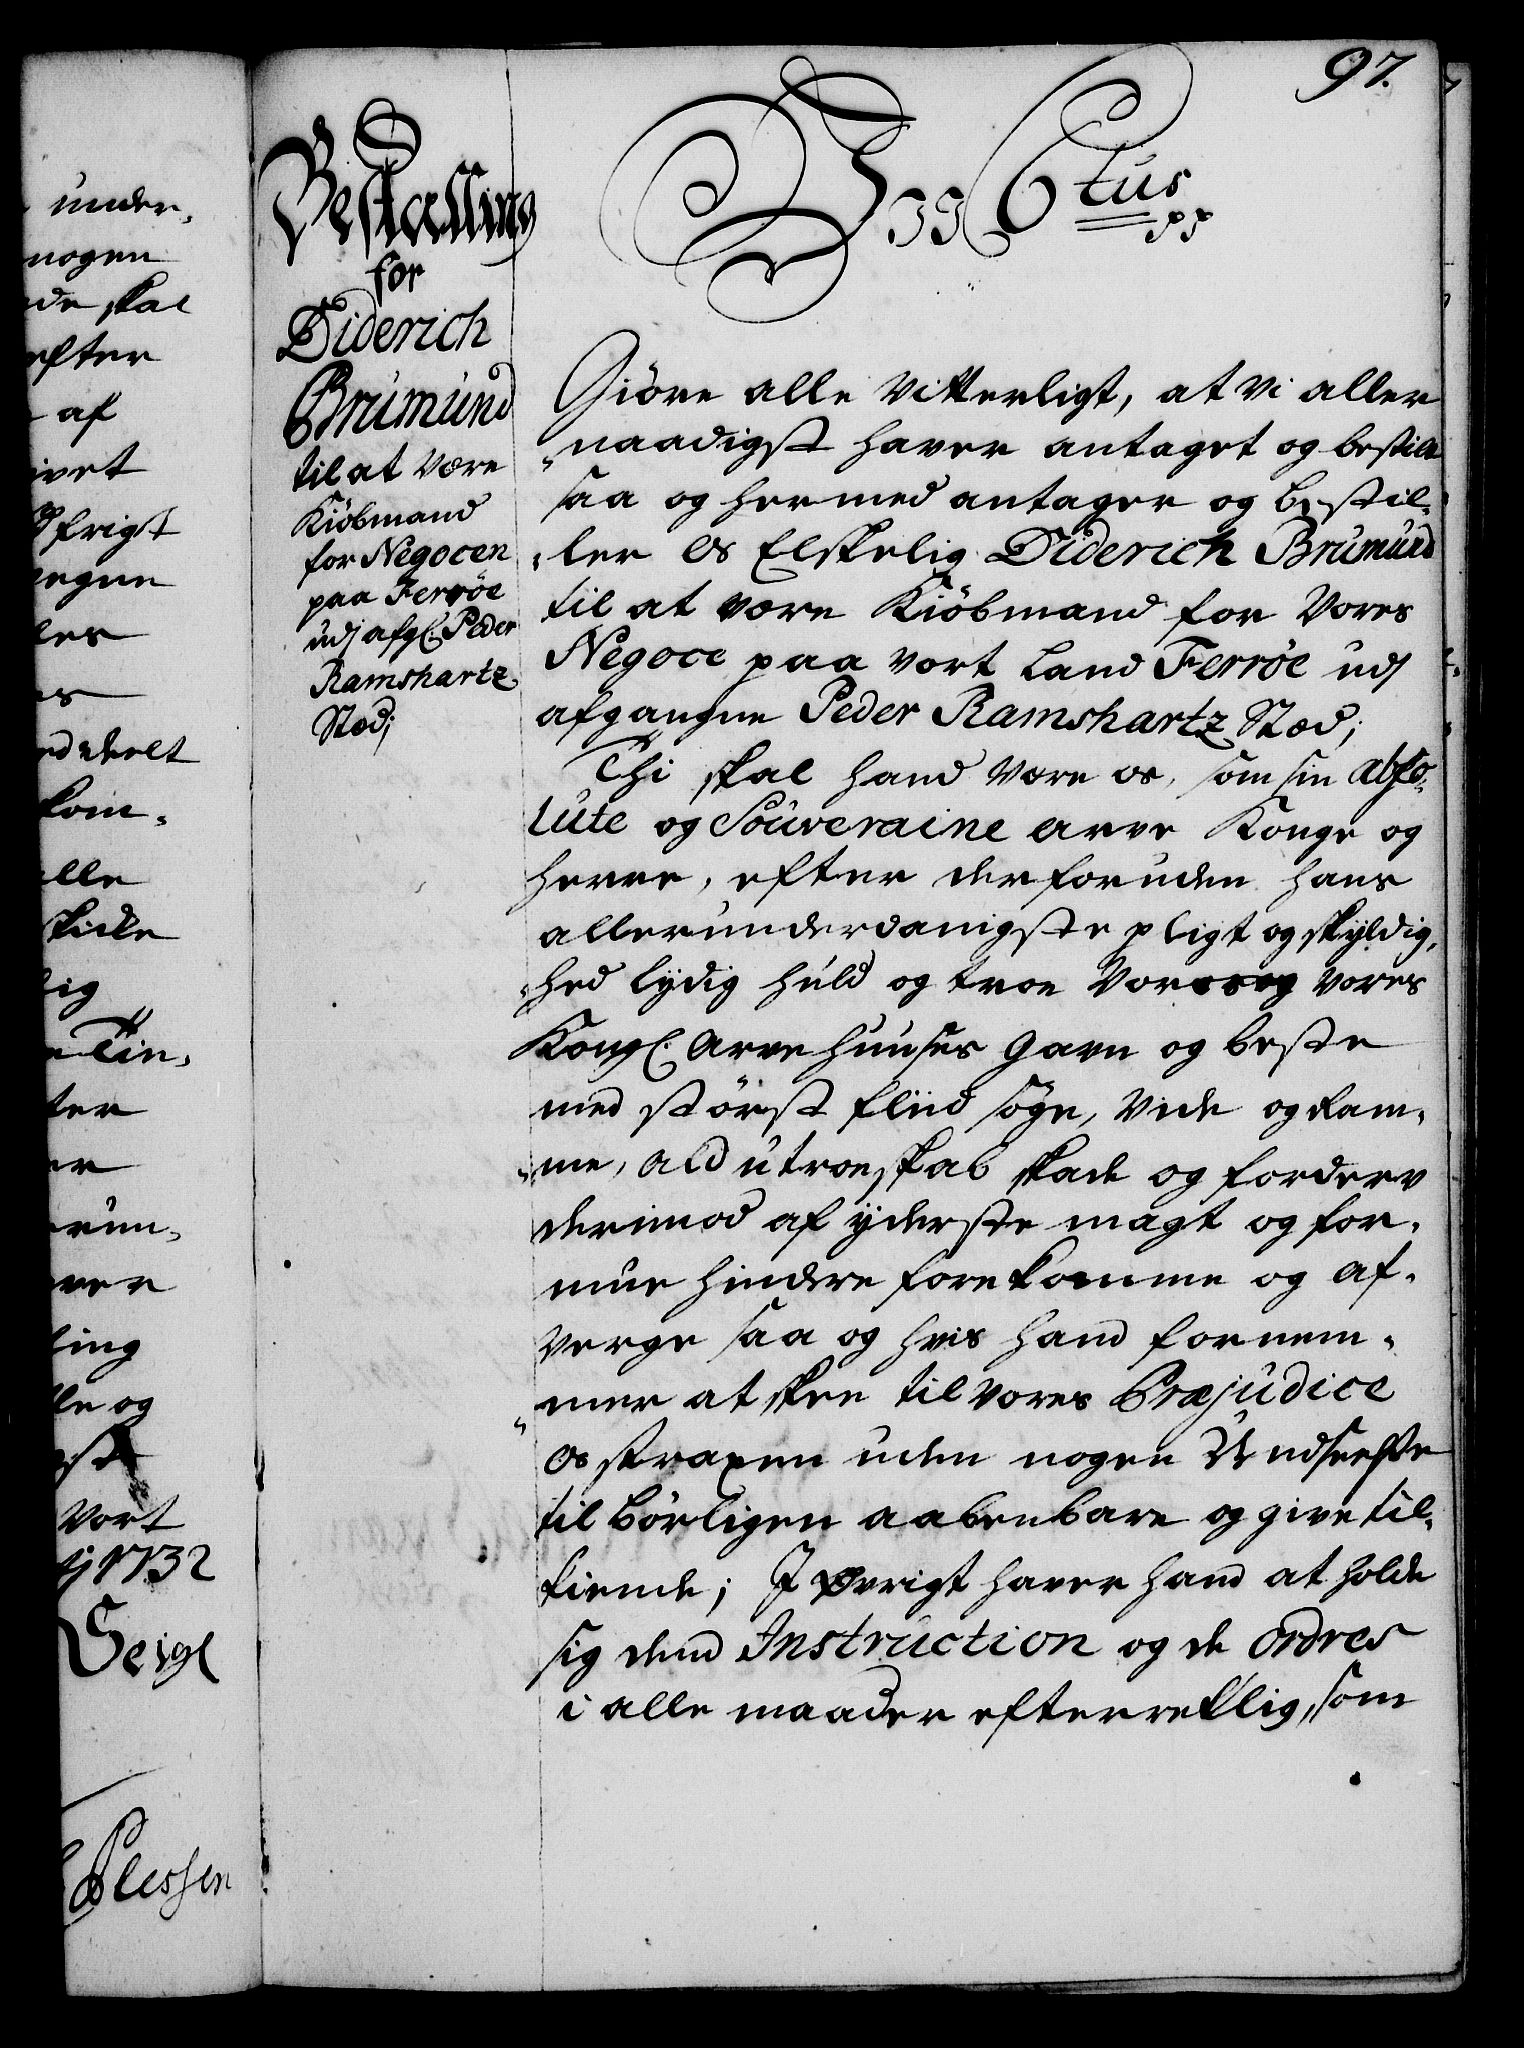 97.
Bestalling
for
Diderich
Brumund
til at være
Kiöbmand
for Negocen
paa Ferröe
udj afgl. Peder
Ramshartz
Stæd;
Vii Ctus
pp
Giöre alle vitterligt, at Vi aller
naadigst haver antaget og bestilt
saa og hermed antager og bestil-
ler Os Elskelig Diderich Brumund
til at være Kiöbmand for Vores
Negoce paa vort Land Ferröe udj
afgangne Peder Ramshartz Stæd;
Thi skal hand være os, som sin abso-
lute og Souveraine arve Konge og
herre, efter derforuden hans
allerunderdanigste pligt og skyldig-
hed lydig huld og troe Vores og Vores
Kongl. arve huuses gavn og beste
med störst fliid söge, Vide og ram-
me, ald utroeskab skade og forderv
derimod af yderste magt og for-
mue hindre forekomme og af-
verge saa og hvis hand fornem-
mer at skee til vores Præjudice
os straxen uden nogen Undseelse
tilbörligen aabenbare og give til-
kiende; I öwrigt haver hand at holde
sig dend Instruction og de Ordres
i alle maader efterretlig, som
under-
nogen
de skal
efter
af
ivet
frigt
vegne
les
es
deelt
kom-
lle
skicke
lig
Tin-
ter
er
run-
ver
ling
le og
st
Vort
1732
Seigl
Plessen